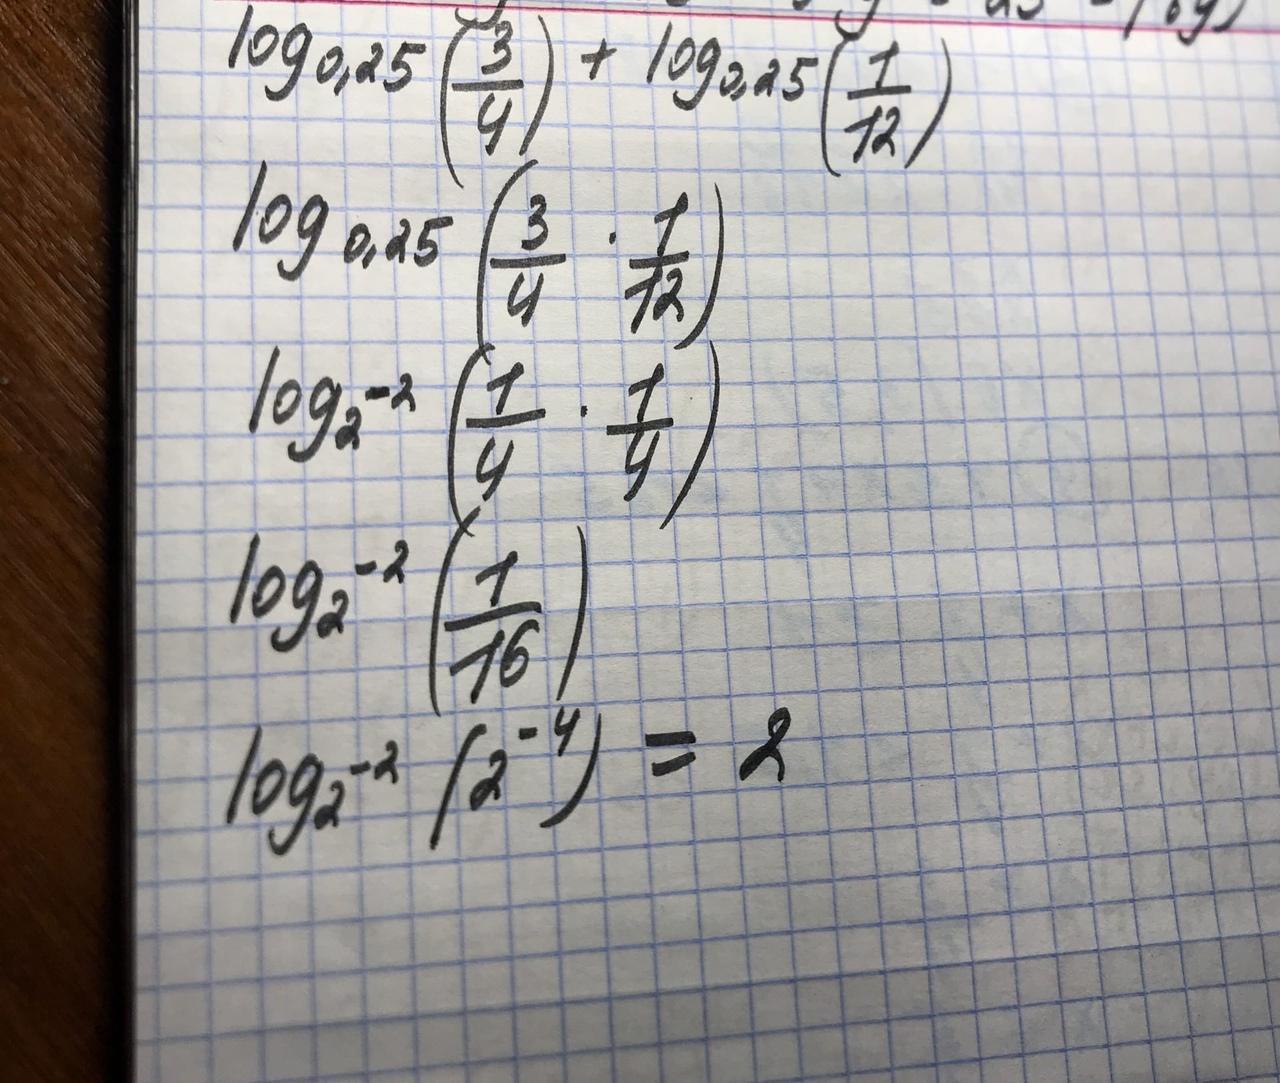 log₀,₂₅(3/4) + log₀,₂₅(1/12)
log₀,₂₅(3/4 · 1/12)
log₂⁻²(1/4 · 1/4)
log₂⁻²(1/16)
log₂⁻²(2⁻⁴) = 2